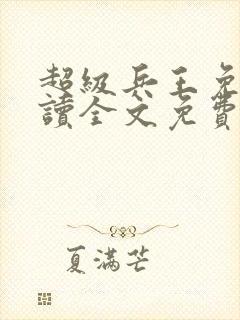 超級兵王免
讀全文免費
夏滿芒